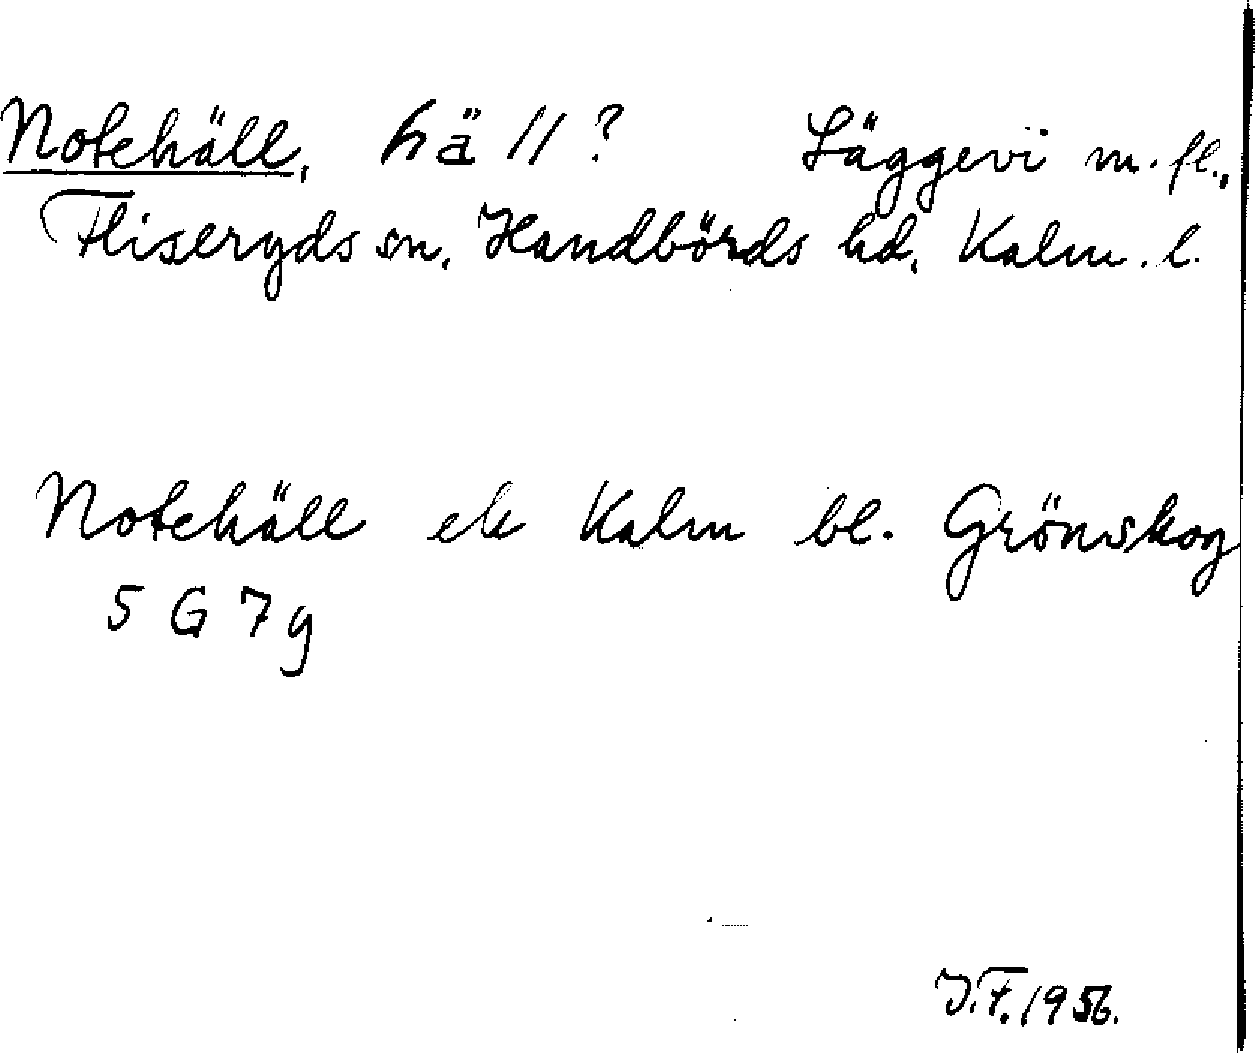 Notehäll, häll? Läggevi m.fl.,
Fliseryds sn. Handbörds hd. Kalm. l.
Notehäll ek Kalm bl. Grönskog
5 G 7 g
J.F. 1956.